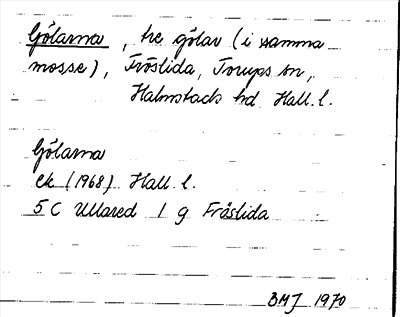 Gölarna, tre gölar (i samma
mosse), Fröslida, Torups sn,
Halmstads hd Hall. l.
Gölarna
ek (1968) Hall l.
5 C Ullared 1 g Fröslida
BMJ 1970